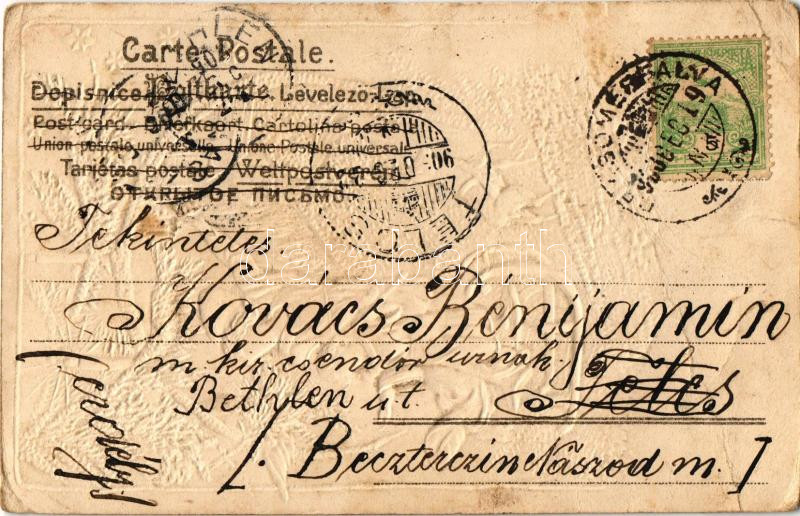 Carte Postale.
Dopisnice Postkarte Levelező-Lap
Post-card Briefkaart Cartolina postale
Union postale universelle Unione Postale universale
Tarjetas postale Weltpostverein
ОТКРЫТОЕ ПИСЬМО
Tekintetes.
Kovács Bénijamin
m kir. csendőr urnak.
Bethlen ut. Tetes
[. Beczterczin Nászod m. ]
(erdély)
darabanth